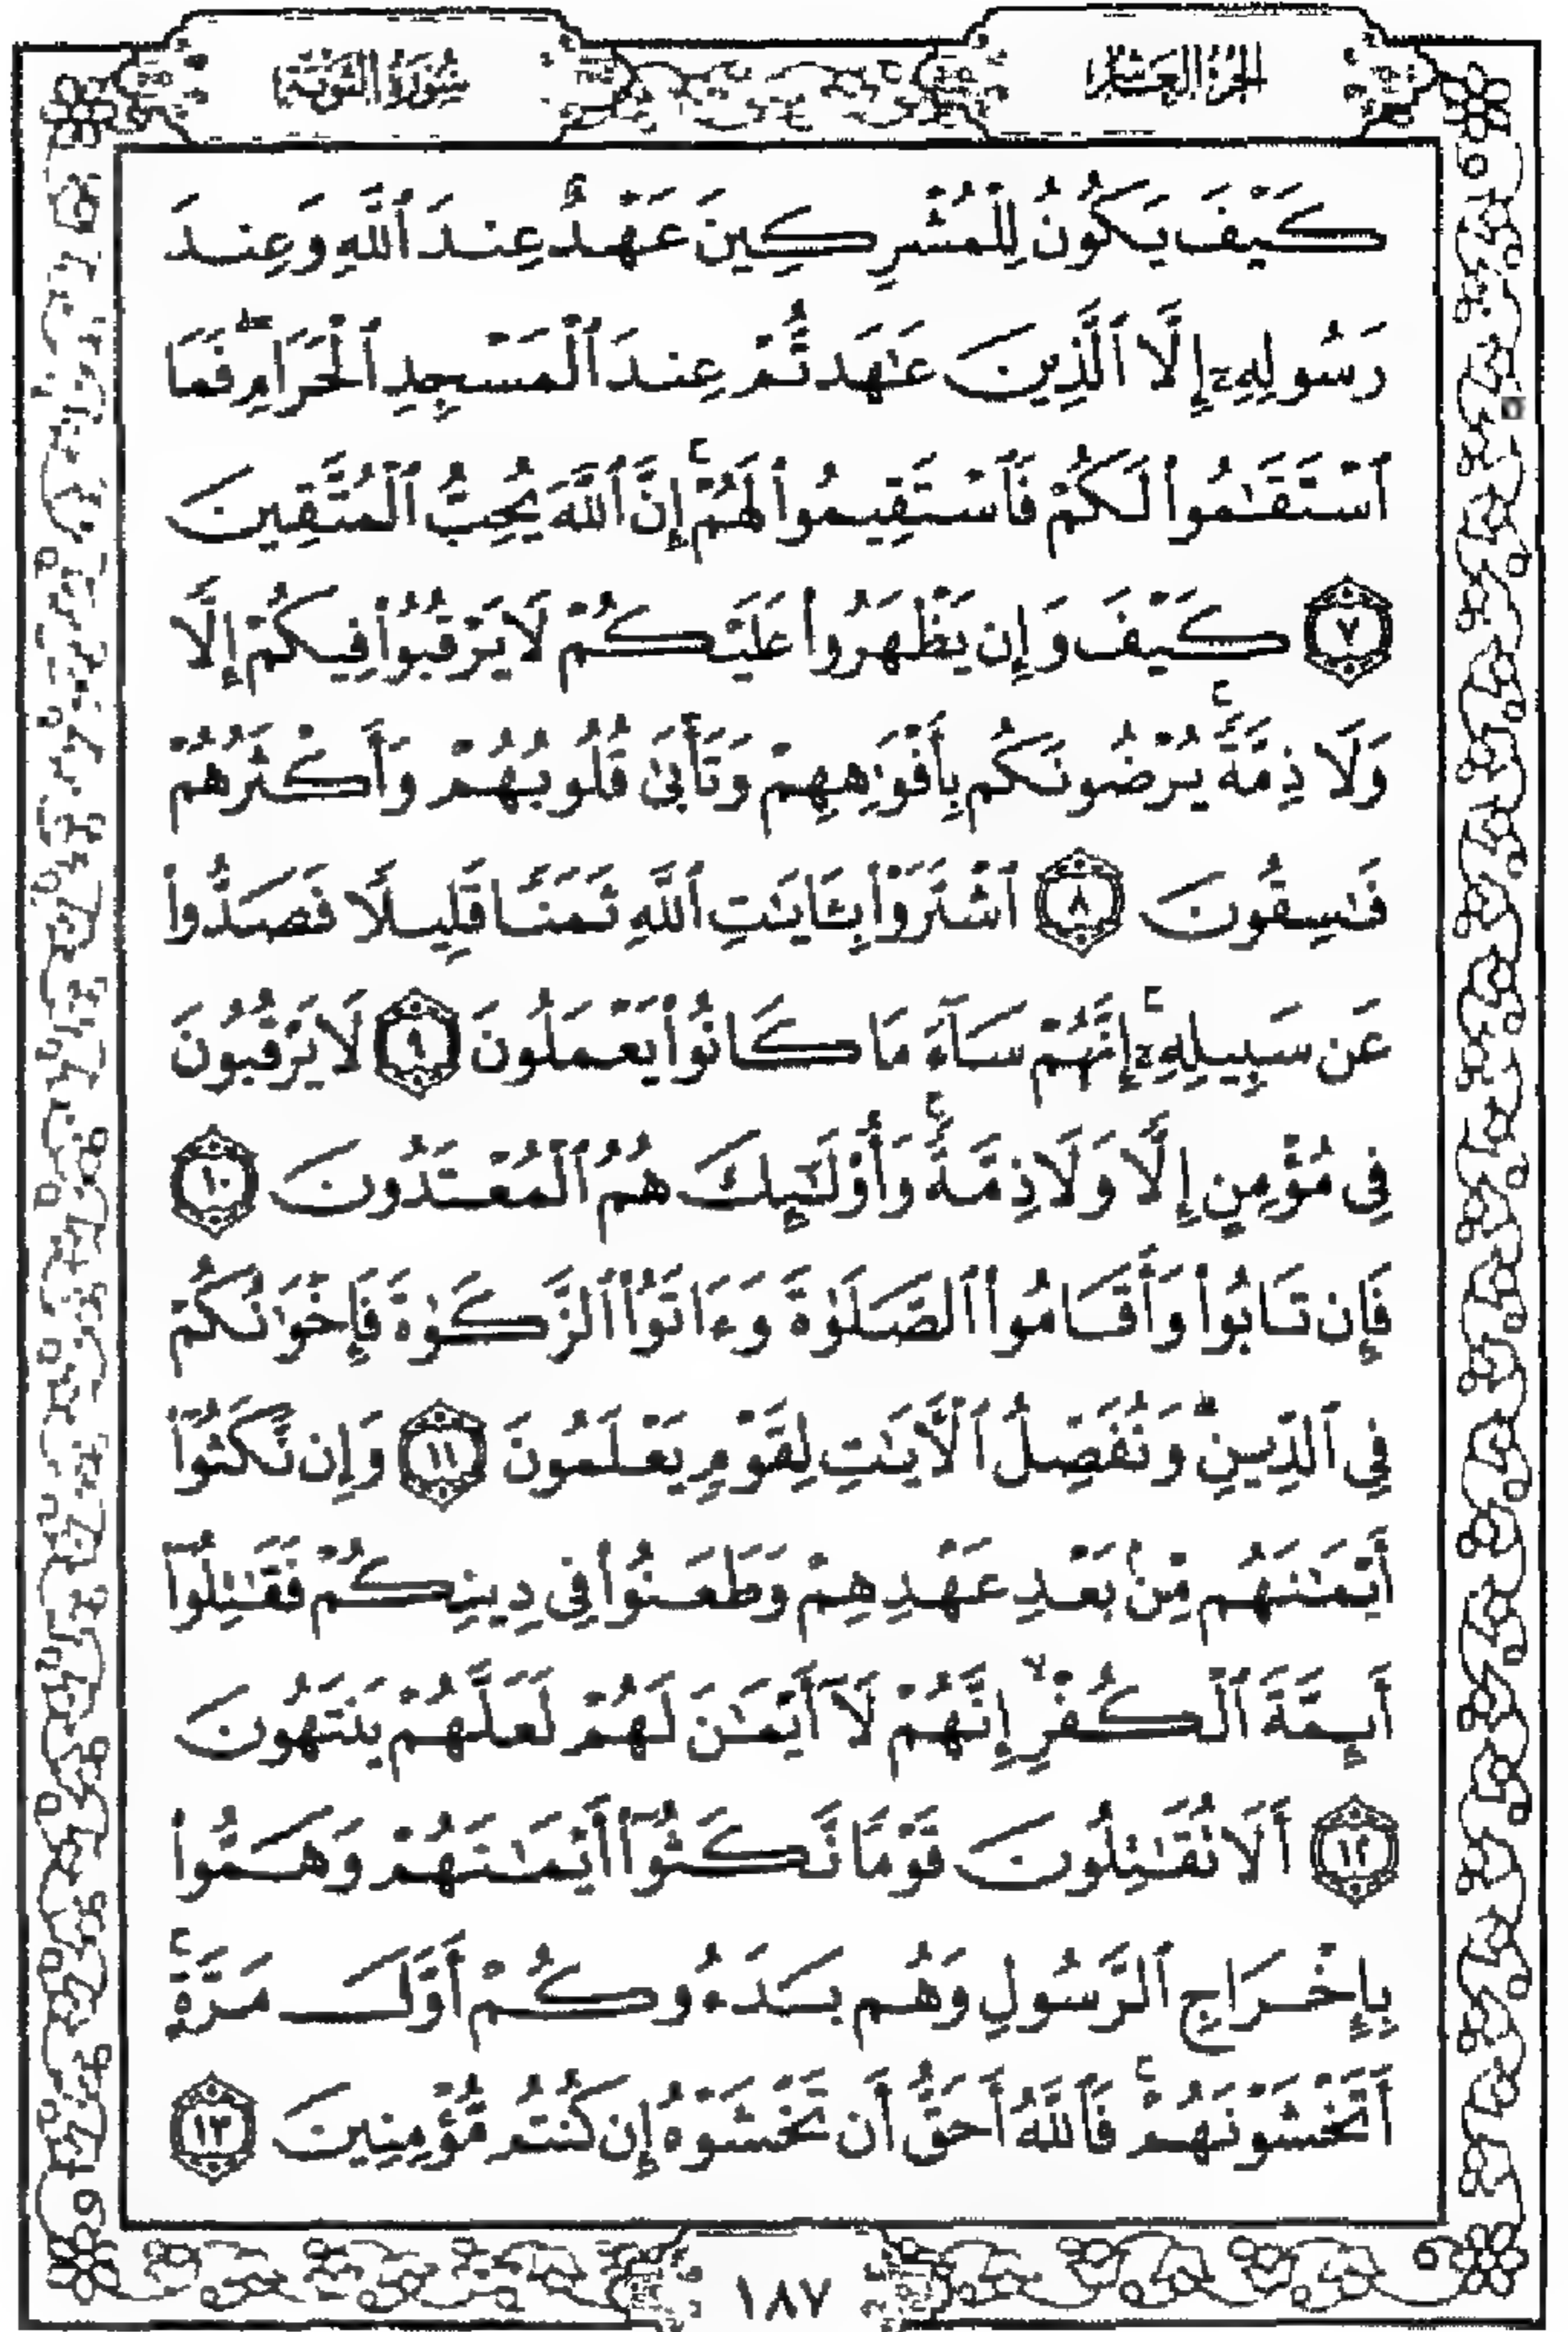 الجزء العاشر
سورة التوبة
كَيْفَ يَكُونُ لِلْمُشْرِكِينَ عَهْدٌ عِندَ ٱللَّهِ وَعِندَ
رَسُولِهِۦٓ إِلَّا ٱلَّذِينَ عَٰهَدتُّمْ عِندَ ٱلْمَسْجِدِ ٱلْحَرَامِۖ فَمَا
ٱسْتَقَٰمُوا۟ لَكُمْ فَٱسْتَقِيمُوا۟ لَهُمْۚ إِنَّ ٱللَّهَ يُحِبُّ ٱلْمُتَّقِينَ
٧ كَيْفَ وَإِن يَظْهَرُوا۟ عَلَيْكُمْ لَا يَرْقُبُوا۟ فِيكُمْ إِلًّا
وَلَا ذِمَّةًۚ يُرْضُونَكُم بِأَفْوَٰهِهِمْ وَتَأْبَىٰ قُلُوبُهُمْ وَأَكْثَرُهُمْ
فَٰسِقُونَ ٨ ٱشْتَرَوْا۟ بِـَٔايَٰتِ ٱللَّهِ ثَمَنًا قَلِيلًا فَصَدُّوا۟
عَن سَبِيلِهِۦٓۚ إِنَّهُمْ سَآءَ مَا كَانُوا۟ يَعْمَلُونَ ٩ لَا يَرْقُبُونَ
فِى مُؤْمِنٍ إِلًّا وَلَا ذِمَّةًۚ وَأُو۟لَٰٓئِكَ هُمُ ٱلْمُعْتَدُونَ ١٠
فَإِن تَابُوا۟ وَأَقَامُوا۟ ٱلصَّلَوٰةَ وَءَاتَوُا۟ ٱلزَّكَوٰةَ فَإِخْوَٰنُكُمْ
فِى ٱلدِّينِۗ وَنُفَصِّلُ ٱلْـَٔايَٰتِ لِقَوْمٍ يَعْلَمُونَ ١١ وَإِن نَّكَثُوٓا۟
أَيْمَٰنَهُم مِّنۢ بَعْدِ عَهْدِهِمْ وَطَعَنُوا۟ فِى دِينِكُمْ فَقَٰتِلُوٓا۟
أَئِمَّةَ ٱلْكُفْرِۙ إِنَّهُمْ لَآ أَيْمَٰنَ لَهُمْ لَعَلَّهُمْ يَنتَهُونَ
١٢ أَلَا تُقَٰتِلُونَ قَوْمًا نَّكَثُوٓا۟ أَيْمَٰنَهُمْ وَهَمُّوا۟
بِإِخْرَاجِ ٱلرَّسُولِ وَهُم بَدَءُوكُمْ أَوَّلَ مَرَّةٍۚ
أَتَخْشَوْنَهُمْۚ فَٱللَّهُ أَحَقُّ أَن تَخْشَوْهُ إِن كُنتُم مُّؤْمِنِينَ ١٣
١٨٧